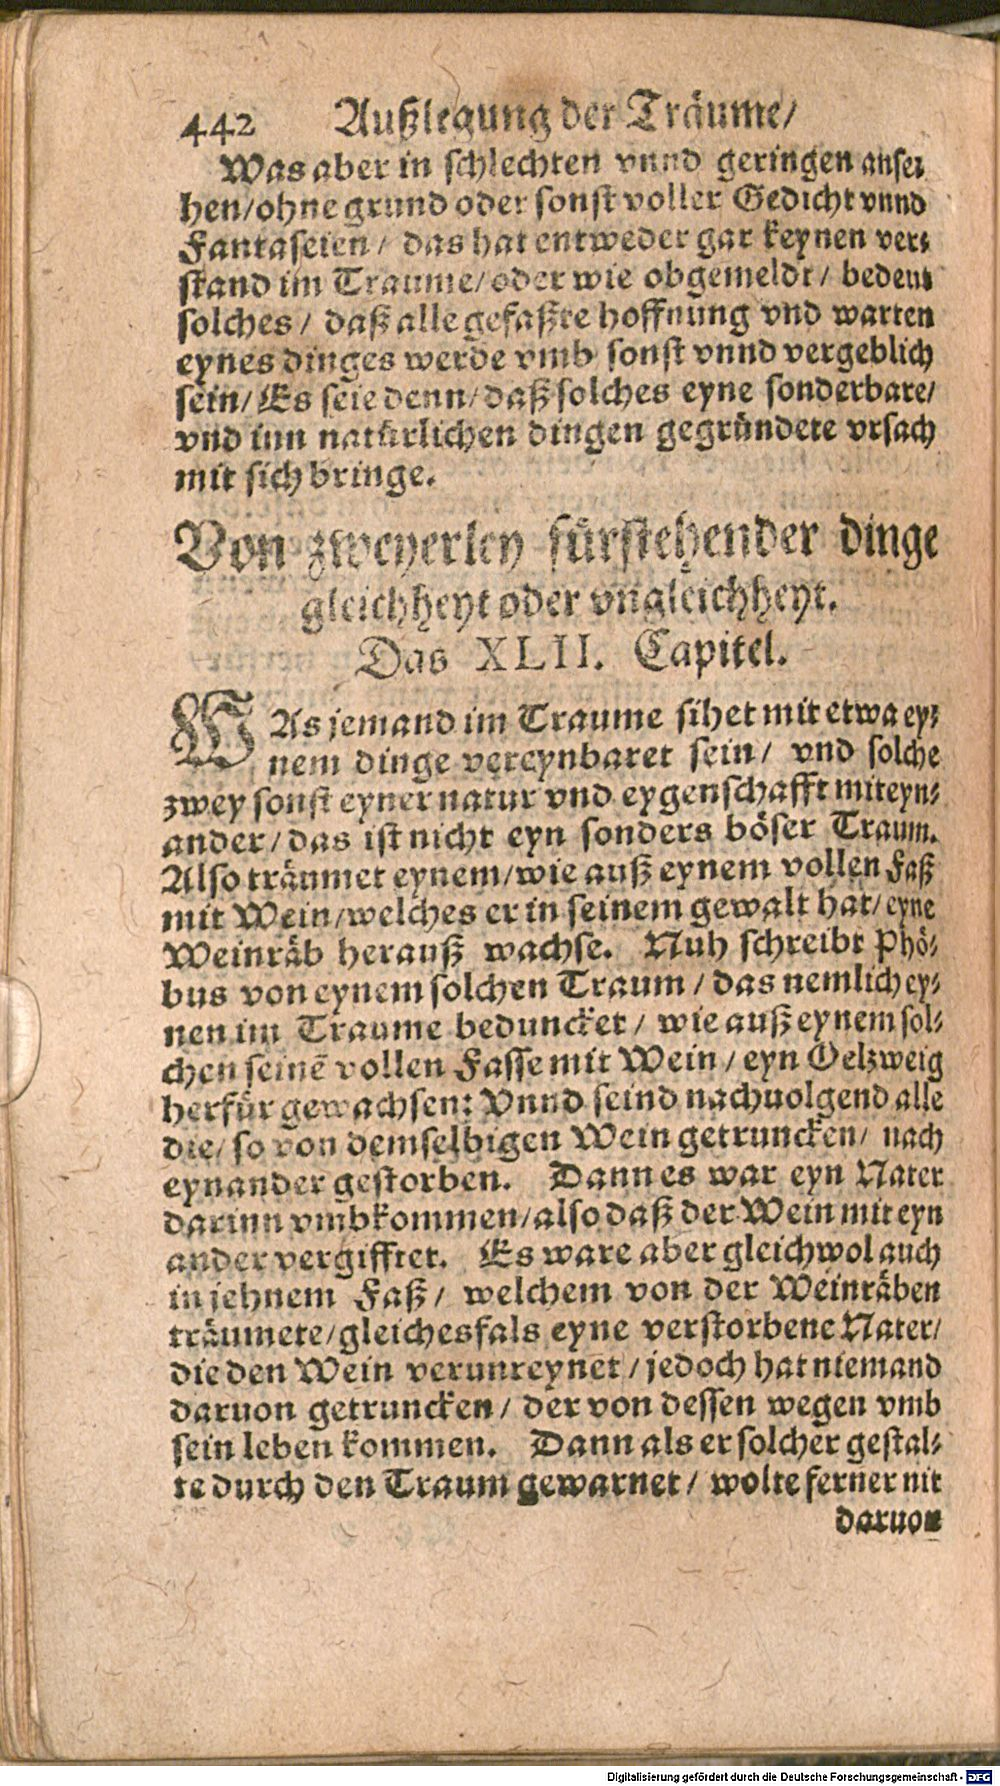 442 Außlegung der Träume/
Was aber in schlechten vnnd geringen anse⸗
hen/ohne grund oder sonst voller Gedicht vnnd
Fantaseien/ das hat entweder gar keynen ver⸗
stand im Traume/oder wie obgemeldt/ bedeut
solches/ daß alle gefaßte hoffnung vnd warten
eynes dinges werde vmb sonst vnnd vergeblich
sein/ Es seie denn/ daß solches eyne sonderbare/
vnd inn natürlichen dingen gegründete vrsach
mit sich bringe.
Von zweyerley fürstehender dinge
gleichheyt oder vngleichheyt.
Das XLII. Capitel.
WAs jemand im Traume sihet mit etwa ey⸗
nem dinge vereynbaret sein/ vnd solche
zwey sonst eyner natur vnd eygenschafft miteyn⸗
ander/das ist nicht eyn sonders böser Traum.
Also träumet eynem/wie auß eynem vollen Faß
mit Wein/welches er in seinem gewalt hat/eyne
Weinräb herauß wachse. Nuh schreibt Phö⸗
bus von eynem solchen Traum/ das nemlich ey⸗
nen im Traume beduncket/ wie auß eynem sol⸗
chen seinē vollen Fasse mit Wein/ eyn Oelzweig
herfür gewachsen: Vnnd seind nachuolgend alle
die/ so von demselbigen Wein getruncken/ nach
eynander gestorben. Dann es war eyn Nater
darinn vmbkommen/also daß der Wein mit eyn
ander vergifftet. Es ware aber gleichwol auch
in jehnem Faß/ welchem von der Weinräben
träumete/gleichesfals eyne verstorbene Nater/
die den Wein verunreynet/ jedoch hat niemand
daruon getruncken/ der von dessen wegen vmb
sein leben kommen. Dann als er solcher gestal⸗
te durch den Traum gewarnet/ wolte ferner nit
daruon
Digitalisierung gefördert durch die Deutsche Forschungsgemeinschaft - DFG